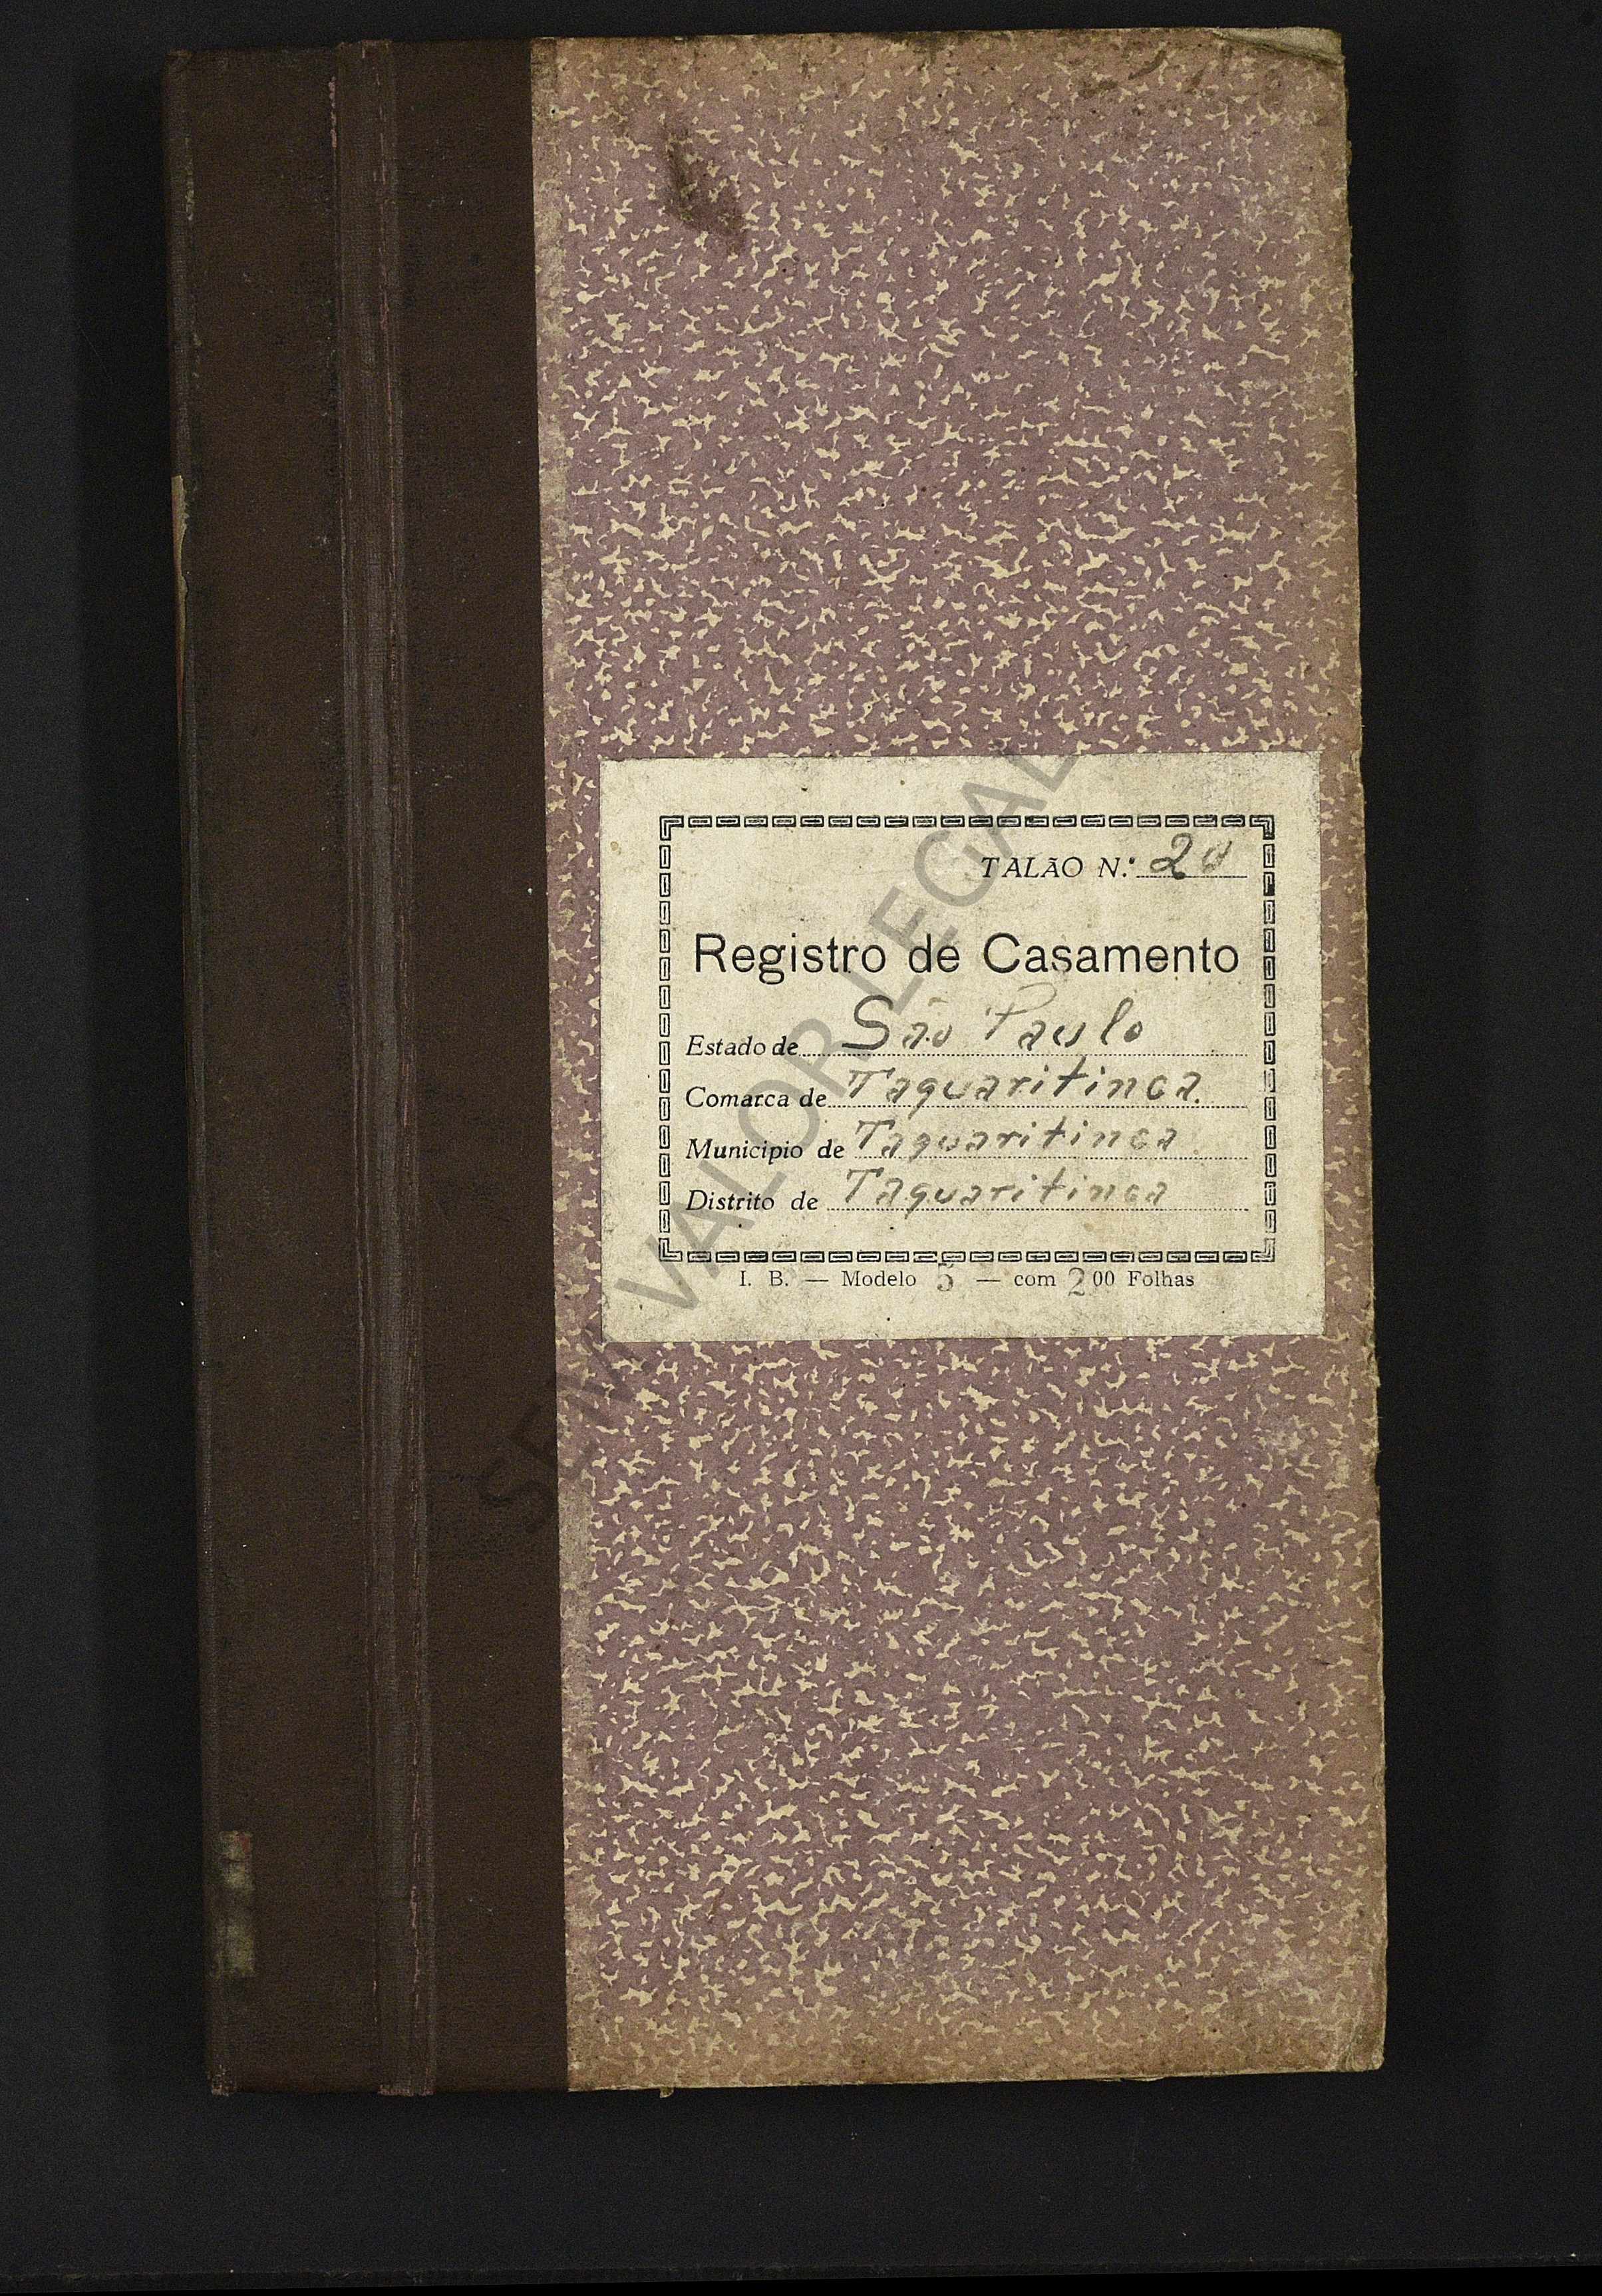 TALÃO N.º 20
Registro de Casamento
Estado de São Paulo
Comarca de Taquaritinga.
Municipio de Taquaritinga
Distrito de Taquaritinga
I. B. — Modelo 5 — com 200 Folhas
SEM VALOR LEGAL